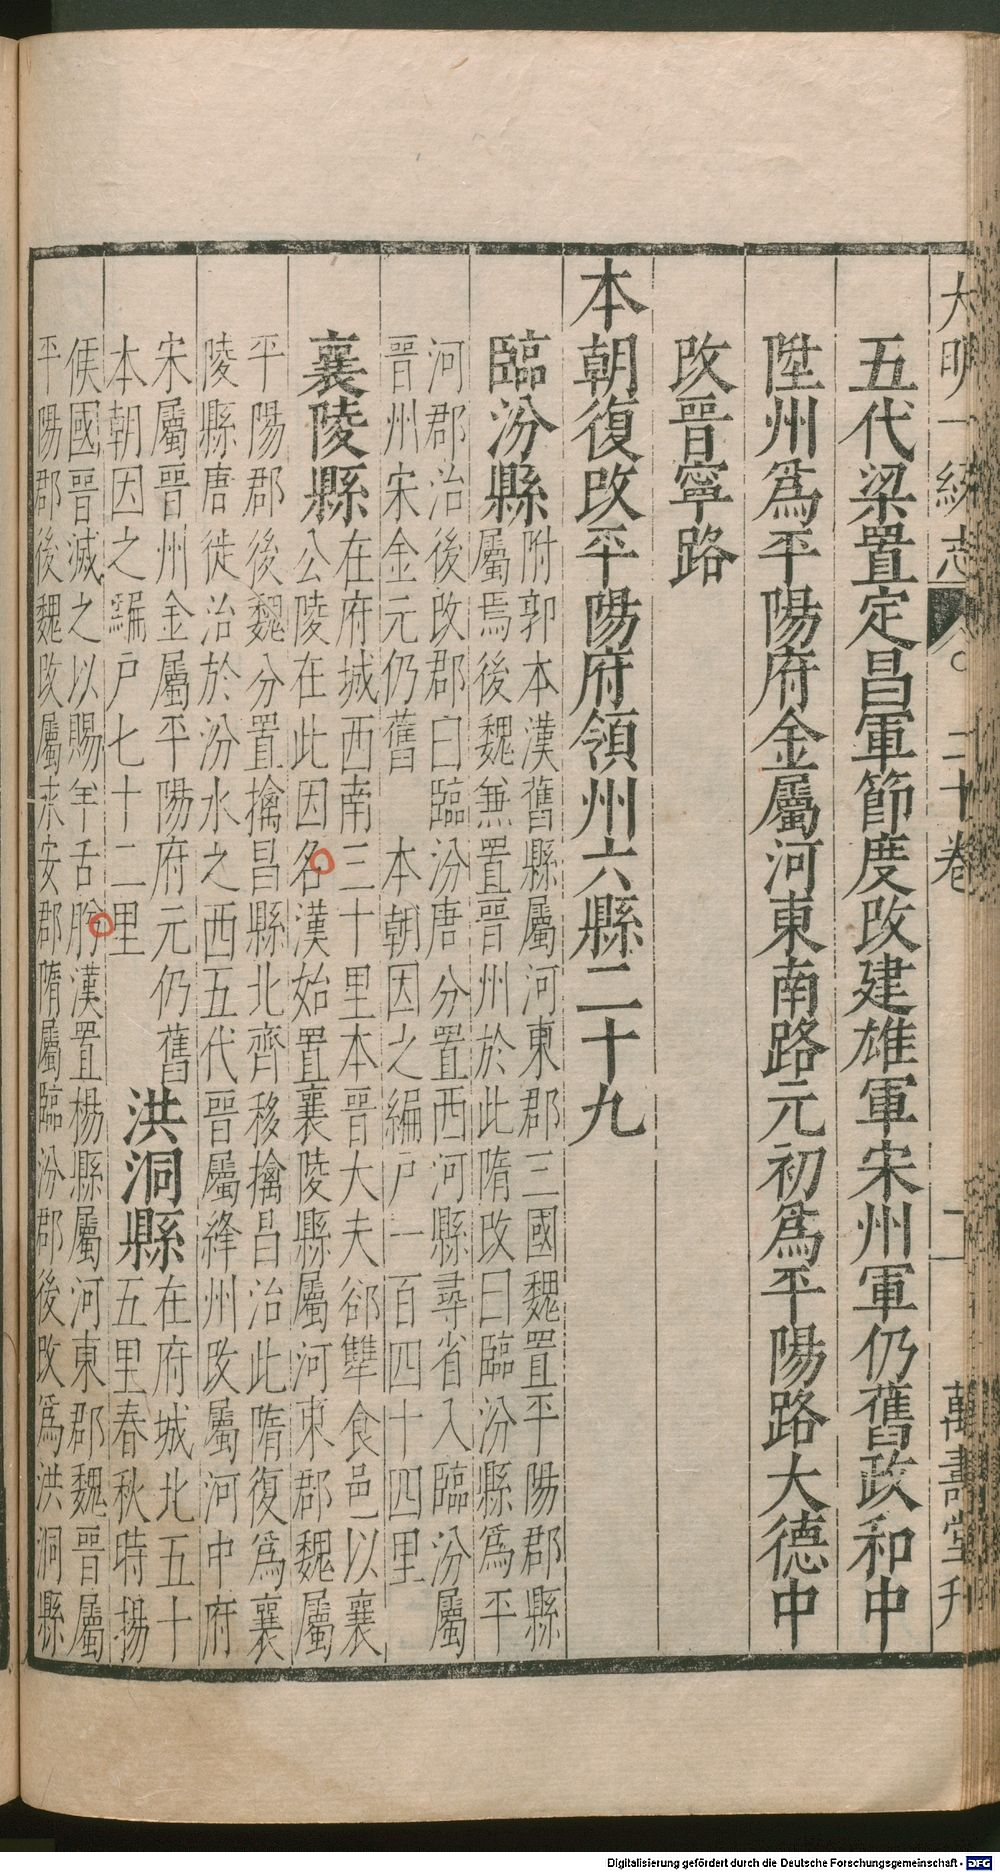 大明一統志 二十卷 二 萬壽堂刋
五代梁置定昌軍節度改建雄軍宋州軍仍舊政和中
陞州爲平陽府金屬河東南路元初爲平陽路大德中
改晉寧路
本朝復改平陽府領州六縣二十九
臨汾縣
附郭本漢舊縣屬河東郡三國魏置平陽郡縣
屬焉後魏無置晉州於此隋改曰臨汾縣爲平
河郡治後改郡曰臨汾唐分置西河縣尋省入臨汾屬
晉州宋金元仍舊 本朝因之編戸一百四十四里
襄陵縣
在府城西南三十里本晉大夫郤犨食邑以襄
公陵在此因名漢始置襄陵縣屬河東郡魏屬
平陽郡後魏分置擒昌縣北齊移擒昌治此隋復爲襄
陵縣唐徙治於汾水之西五代晉屬絳州改屬河中府
宋屬晉州金屬平陽府元仍舊
本朝因之編戸七十二里
洪洞縣
在府城北五十
五里春秋時揚
侯國晉滅之以賜羊舌肸漢置楊縣屬河東郡魏晉屬
平陽郡後魏改屬永安郡隋屬臨汾郡後改爲洪洞縣
Digitalisierung gefördert durch die Deutsche Forschungsgemeinschaft - DFG